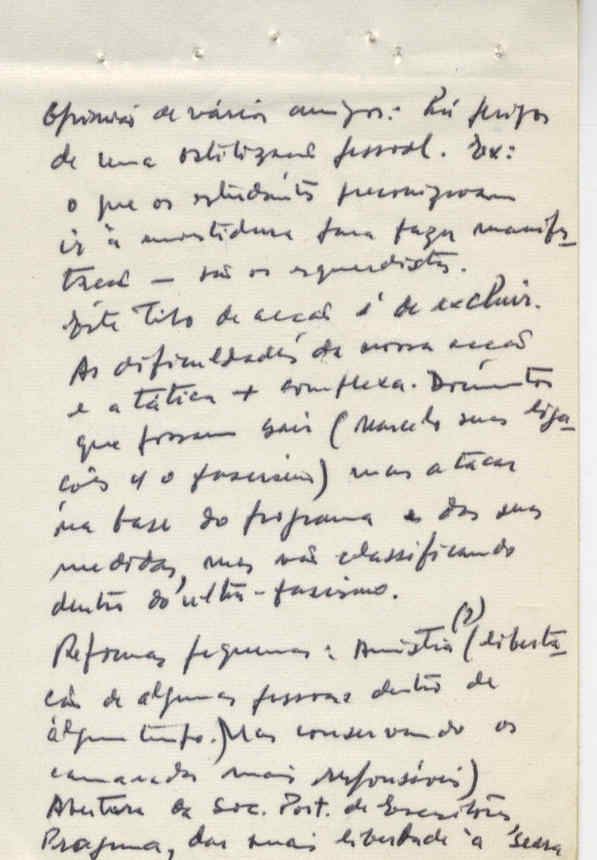 Opinião de vários amigos: Há perigos
de uma estilização pessoal. Ex:
o que os estudantes preconizavam
ir à investidura para fazer manifes-
tação — são os esquerdistas.
Este tipo de acção é de excluir.
As dificuldades da nossa acção
e a tática + complexa. Documentos
que possam sair (Marcelo suas liga-
ções c/ o fascismo) mas atacar
na base do programa e das suas
medidas, mas não classificando
dentro do ultra-fascismo.
Reformas pequenas: Amnistia (?) (liberta-
ção de algumas pessoas dentro de
algum tempo.) Mas conservando os
camaradas mais responsáveis)
Abertura da Soc. Port. de Escritores,
Pragma, dar mais liberdade à "Seara